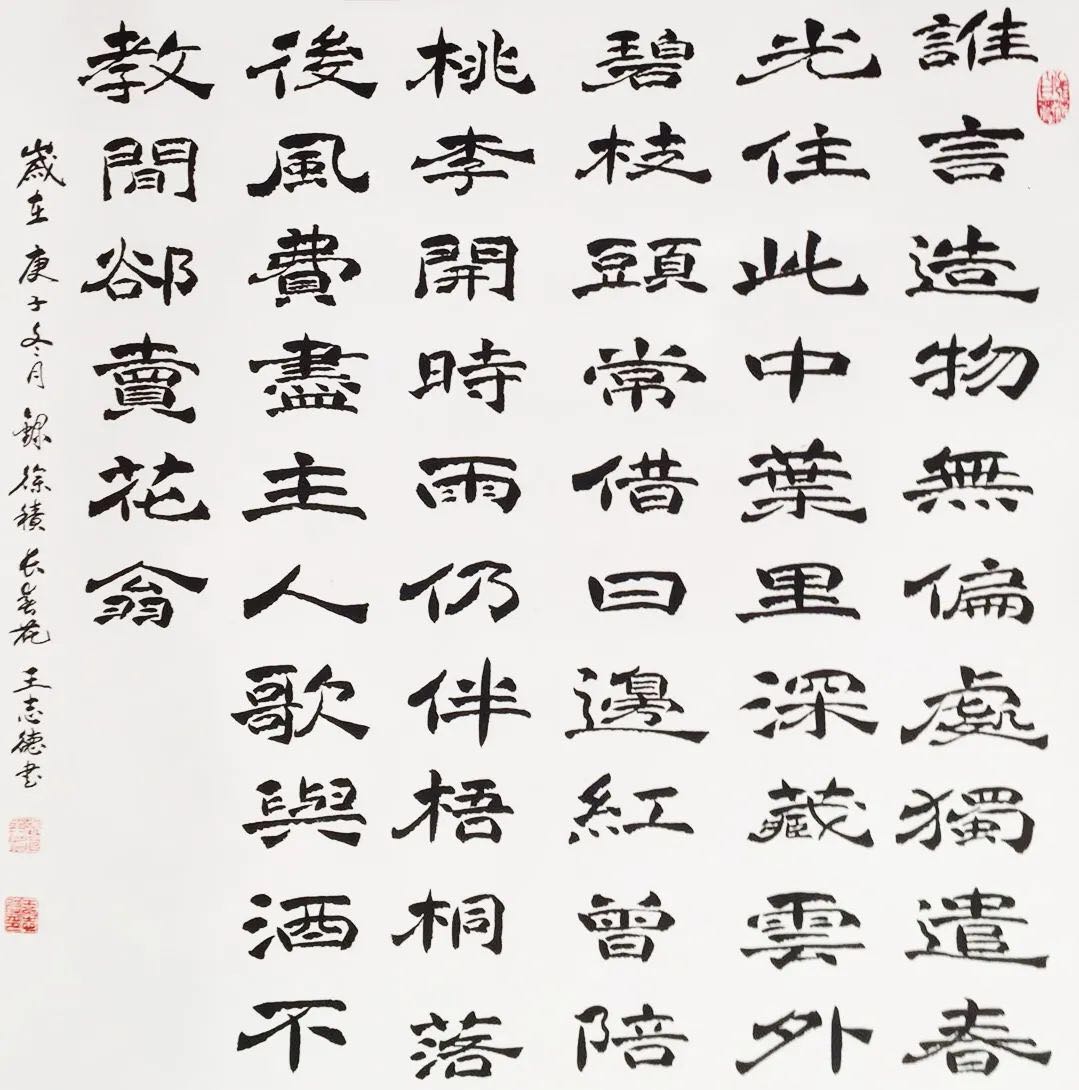 誰言造物無偏處獨遣春
光住此中葉里深藏雲外
碧枝頭常借日邊紅曾陪
桃李開時雨仍伴梧桐落
後風費盡主人歌與酒不
教閒卻賣花翁
歲在庚子冬月錄徐積長春花王志德书